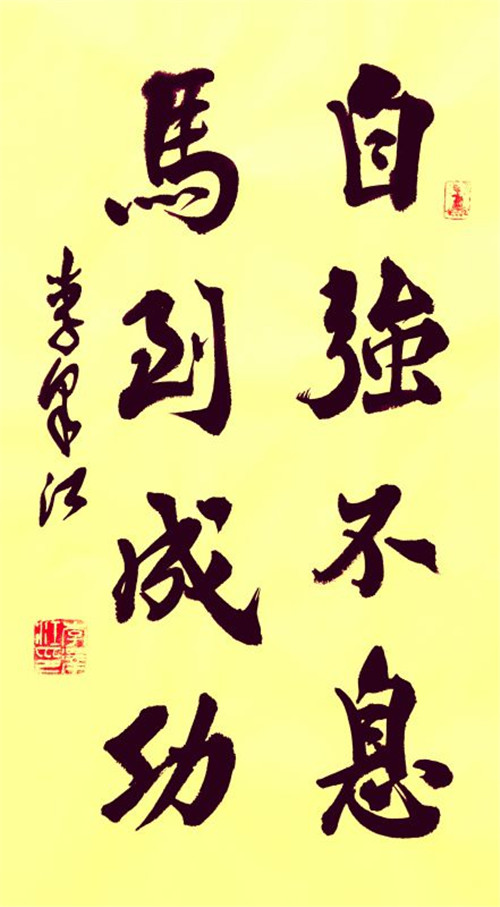 自強不息
馬到成功
李軍江